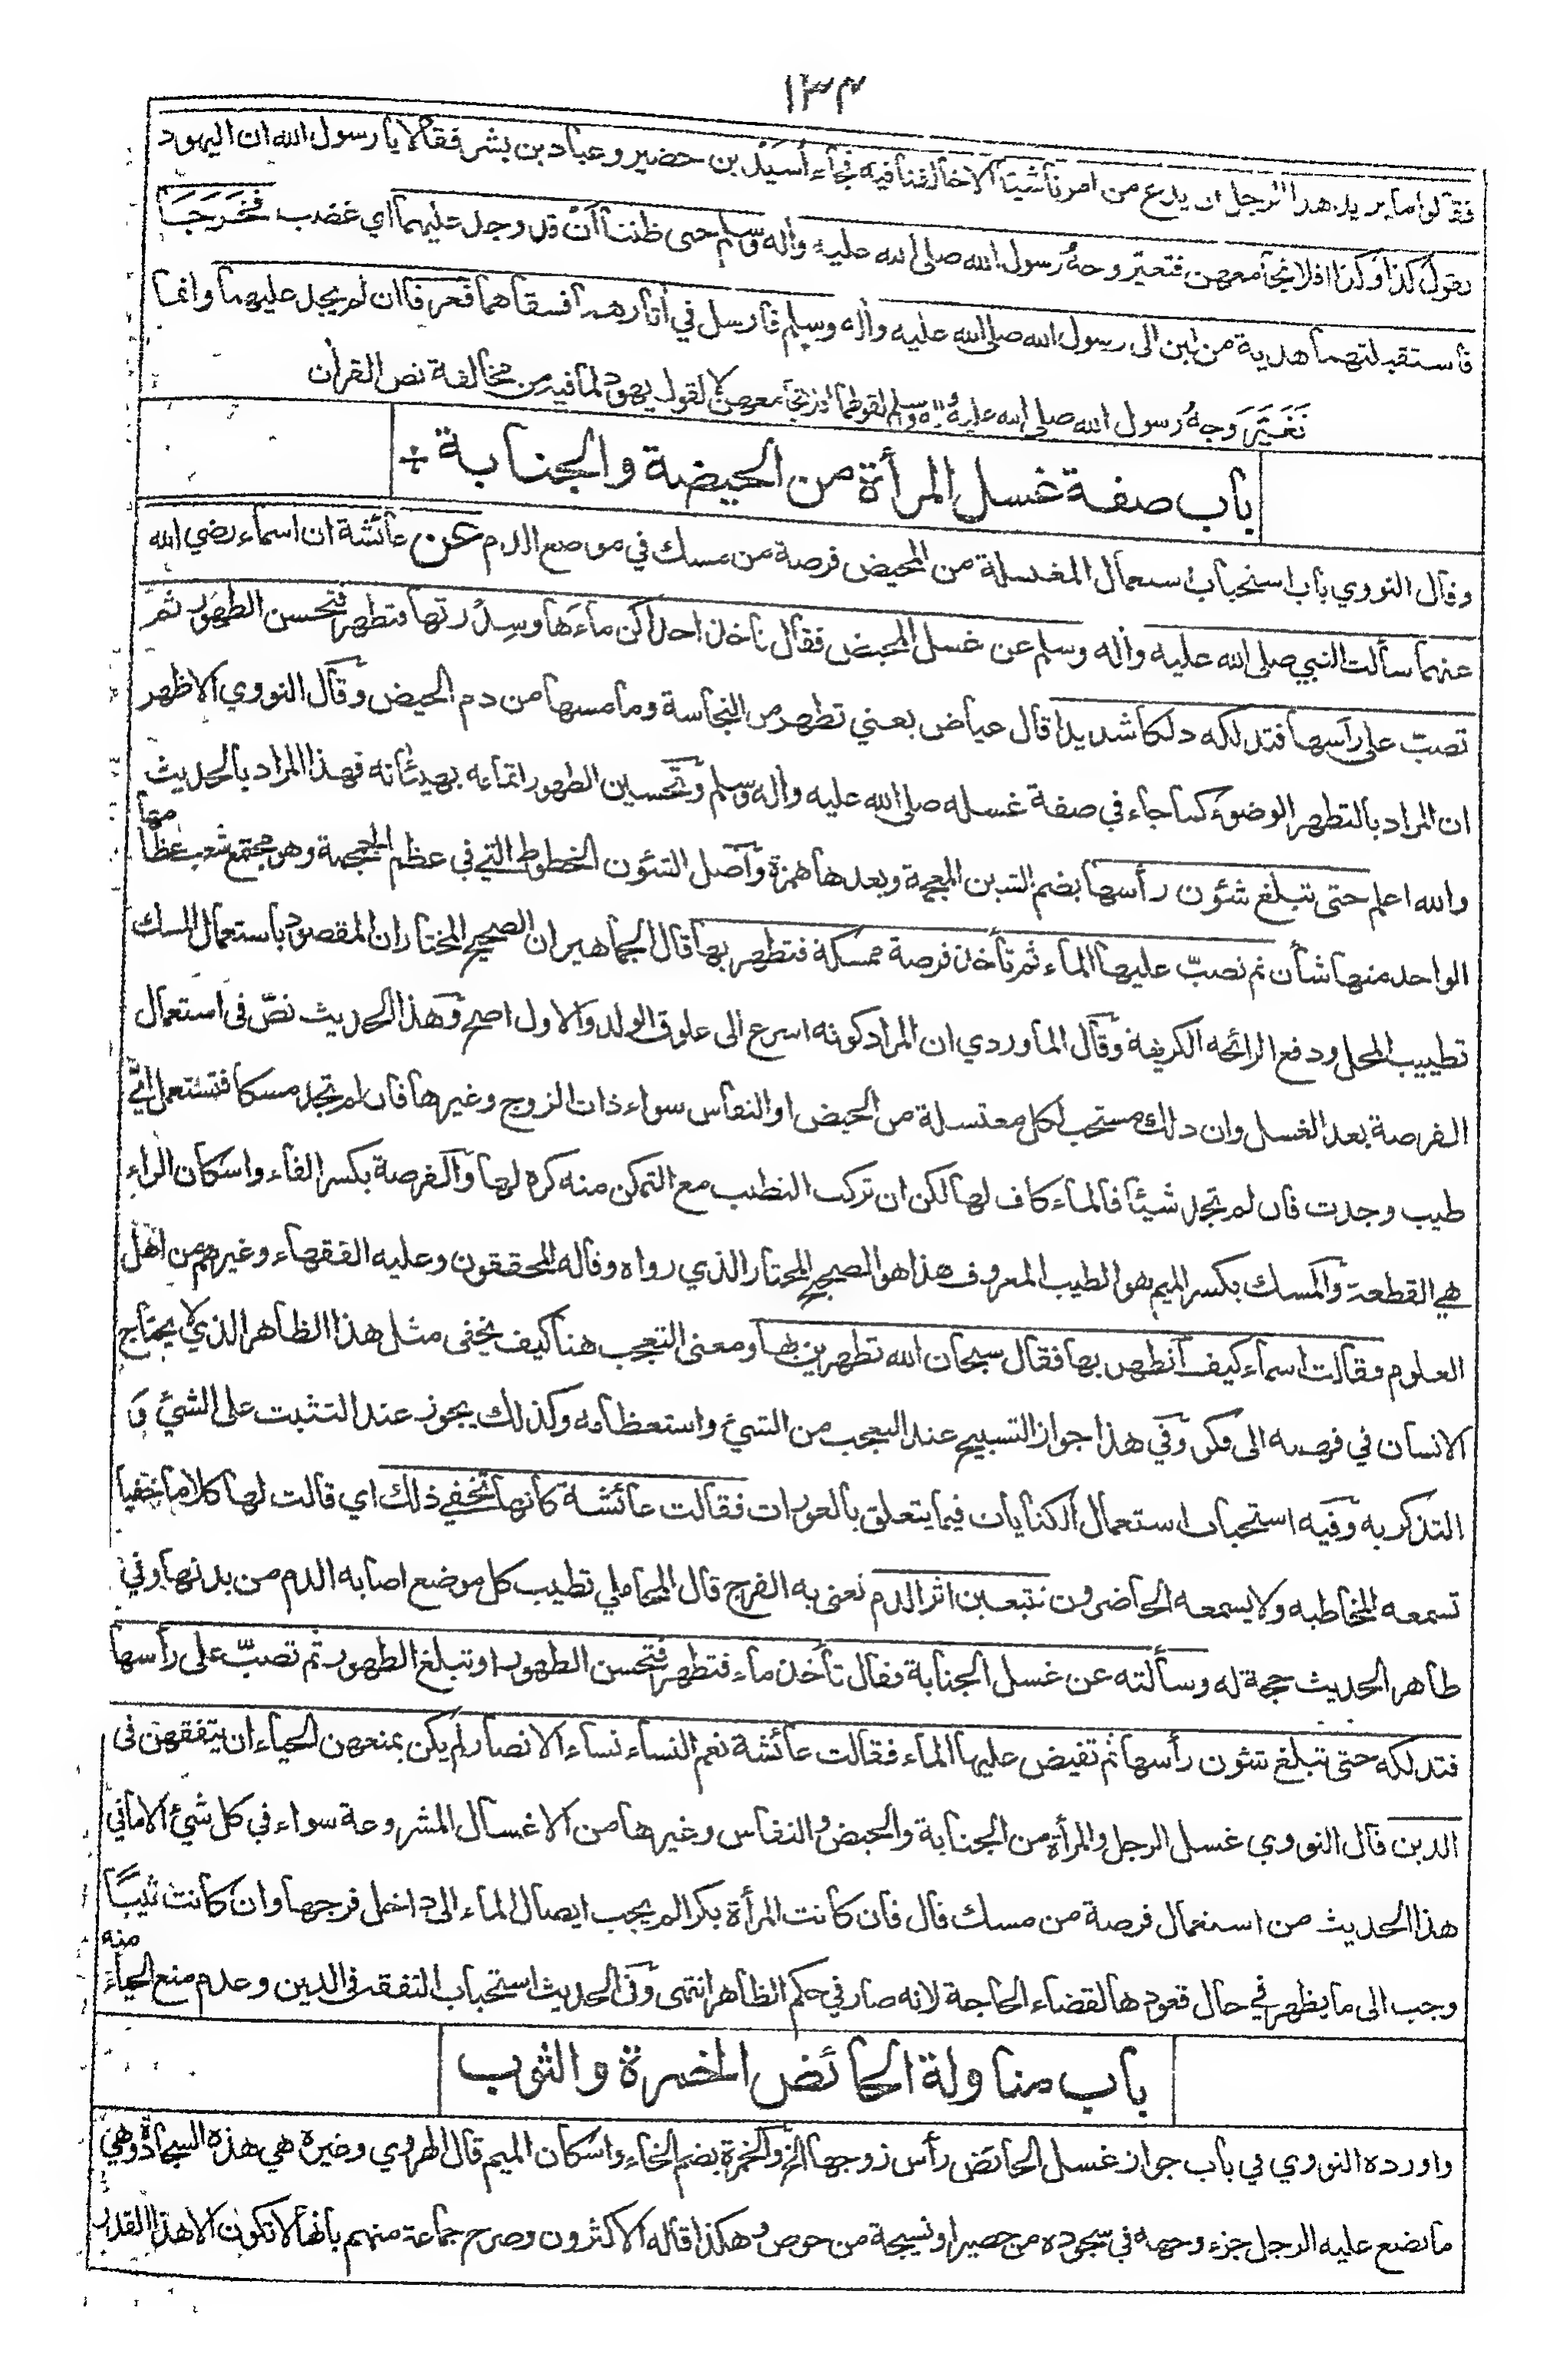 ١٣٤
فقالوا ما يريد هذا الرجل ان يدع من امرنا شيئا الا خالفنا فيه فجاء أسيد بن حضير وعباد بن بشر فقالا يا رسول الله ان اليهود
تقول كذا وكذا افلا نجامعهن فتغير وجه رسول الله صلى الله عليه وأله وسلم حتى ظننا أن قد وجد عليهما اي غضب فخرجا
فاستقبلتهما هدية من لبن الى رسول الله صلى الله عليه وأله وسلم فارسل في أثارهما فسقاهما فعرفا ان لم يجد عليهما وانما
تغير وجه رسول الله صلى الله عليه وأله وسلم لقولهما افلا نجامعهن لا لقول يهود لما فيه من مخالفة نص القرأن
باب صفة غسل المرأة من الحيضة والجنابة
وقال النووي باب استحباب استعمال المغتسلة من المحيض فرصة من مسك في موضع الدم عن عائشة ان اسماء رضي الله
عنهما سألت النبي صلى الله عليه وأله وسلم عن غسل المحيض فقال تأخذ احداكن ماءها وسدرتها فتطهر فتحسن الطهور ثم
تصبّ على رأسها فتدلكه دلكا شديدا قال عياض يعني تطهر من النجاسة وما مسها من دم الحيض وقال النووي الاظهر
ان المراد بالتطهر الوضوء كما جاء في صفة غسله صلى الله عليه وأله وسلم وتحسين الطهور اتمامه بهيئاته فهذا المراد بالحديث
والله اعلم حتى تبلغ شئون رأسها بضم الشين المعجمة وبعدها همزة وأصل الشئون الخطوط التي في عظم الجمجمة وهو مجتمع شعب عظامها
الواحد منها شأن ثم تصبّ عليها الماء ثم تأخذ فرصة ممسكة فتطهر بها قال الجماهير ان الصحيح المختار ان المقصود باستعمال المسك
تطييب المحل ودفع الرائحة الكريهة وقال الماوردي ان المراد كونه اسرع الى علوق الولد والاول اصح وهذا الحديث نصّ في استعمال
الفرصة بعد الغسل وان ذلك مستحب لكل مغتسلة من الحيض او النفاس سواء ذات الزوج وغيرها فان لم تجد مسكا فتستعمل ايّ
طيب وجدت فان لم تجد شيئا فالماء كاف لها لكن ان تركت التطيب مع التمكن منه كره لها والفرصة بكسر الفاء واسكان الراء
هي القطعة والمسك بكسر الميم هو الطيب المعروف هذا هو الصحيح المختار الذي رواه وقاله المحققون وعليه الفقهاء وغيرهم من اهل
العلوم فقالت اسماء كيف أتطهر بها فقال سبحان الله تطهرين بها ومعنى التعجب هنا كيف يخفى مثل هذا الظاهر الذي لا يحتاج
الانسان في فهمه الى فكر وفي هذا جواز التسبيح عند التعجب من الشيء واستعظامه وكذلك يجوز عند التثبت على الشيء و
التذكر به وفيه استحباب استعمال الكنايات فيما يتعلق بالعورات فقالت عائشة كانها تخفي ذلك اي قالت لها كلاما خفيا
تسمعه المخاطبه ولا يسمعه الحاضرون تتبعين اثر الدم تعنى به الفرج قال المحاملي تطيب كل موضع اصابه الدم من بدنها وفي
ظاهر الحديث حجة له وسألته عن غسل الجنابة فقال تأخذ ماء فتطهر فتحسن الطهور او تبلغ الطهور ثم تصبّ على رأسها
فتدلكه حتى تبلغ شئون رأسها ثم تفيض عليها الماء فقالت عائشة نعم النساء نساء الانصار لم يكن يمنعهن الحياء ان يتفقهن في
الدين قال النووي غسل الرجل والمرأة من الجنابة والحيض والنفاس وغيرها من الاغسال المشروعة سواء في كل شيء الا ما في
هذا الحديث من استعمال فرصة من مسك قال فان كانت المرأة بكرا لم يجب ايصال الماء الى داخل فرجها وان كانت ثيبًا
وجب الى ما يظهر في حال قعودها لقضاء الحاجة لانه صار في حكم الظاهر انتهى وفي الحديث استحباب التفقه في الدين وعدم منع الحياء منه
باب مناولة الحائض الخمرة والثوب
واورده النووي في باب جواز غسل الحائض رأس زوجها الخ والخمرة بضم الخاء واسكان الميم قال الهروي وغيره هي هذه السجادة وهي
ما يضع عليه الرجل جزء وجهه في سجوده من حصير او نسيجة من خوص وهكذا قاله الاكثرون وصرح جماعة منهم بانها لا تكون الا هذا القدر